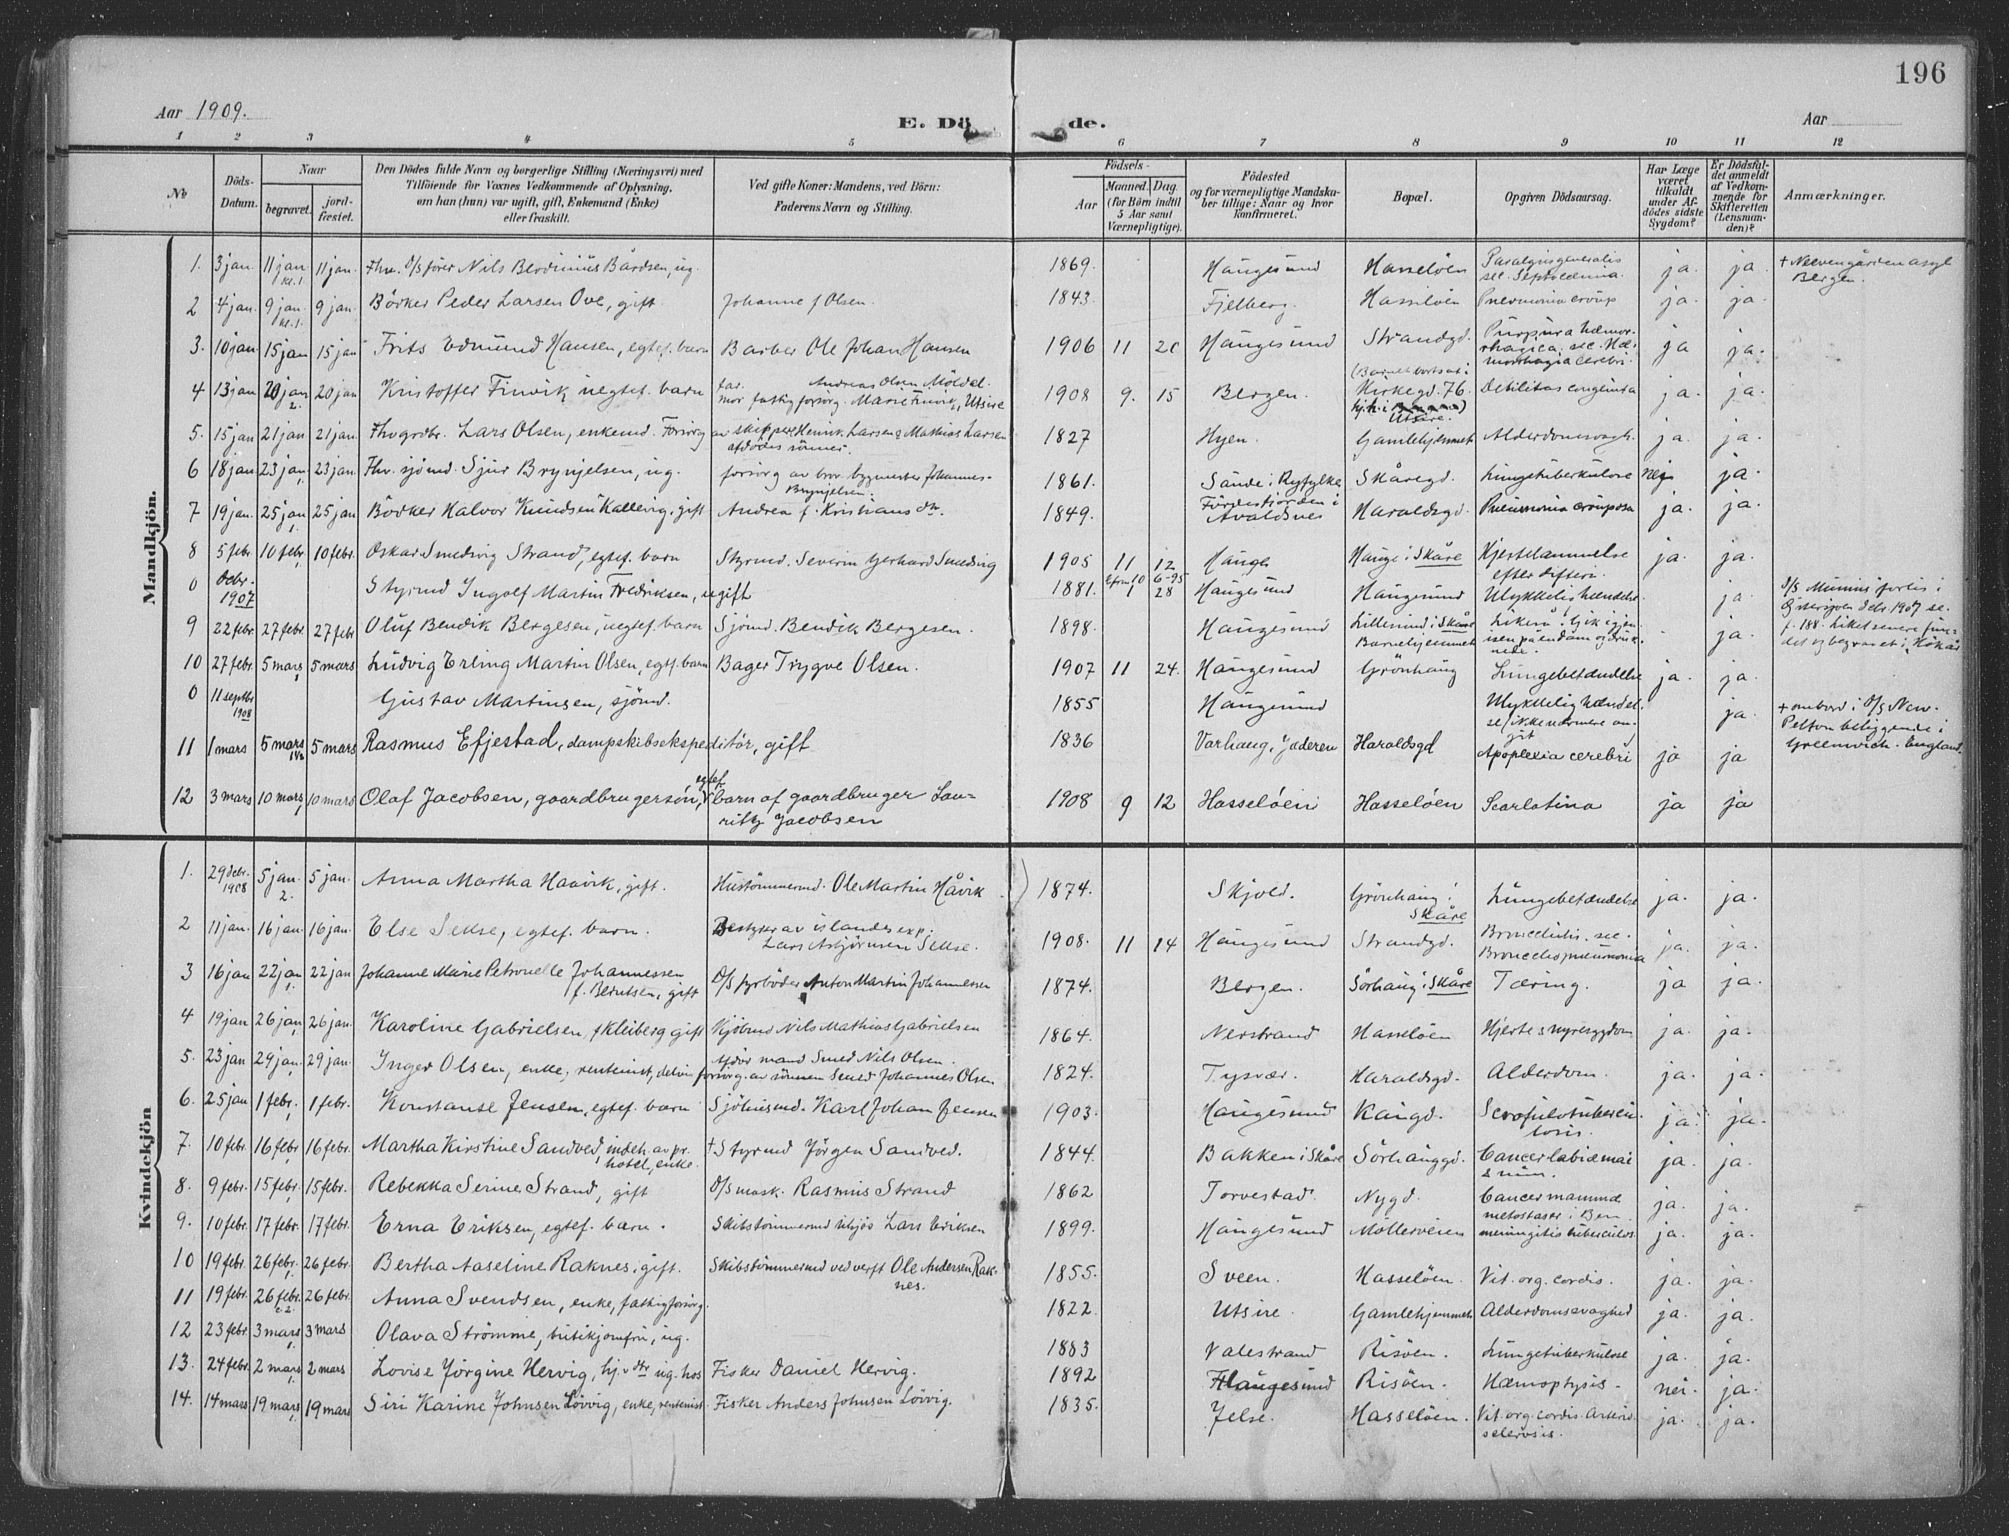 196
Aar 1909. E. Dö de. Aar
1 2 3 4 5 6 7 8 9 10 11 12
№ Döds-Datum. Naar begravet. jordfæstet. Den Dödes fulde Navn og borgerlige Stilling (Næringsvei) med Tilföiende for Voxnes Vedkommende af Oplysning, om han (hun) var ugift, gift, Enkemand (Enke) eller fraskilt. Ved gifte Koner: Mandens, ved Börn: Faderens Navn og Stilling. Födsels- Aar Maaned. Dag. (for Börn indtil 5 Aar samt Værnepligtige). Födested og for værnepligtige Mandskaber tillige: Naar og hvor konfirmeret. Bopæl. Opgiven Dödsaarsag. Har Læge været tilkaldt under Afdödes sidste Sygdom? Er Dödsfaldet anmeldt af Vedkommende for Skifteretten (Lensmanden)? Anmærkninger.
Mandkjön.
1. 3 jan. 11 jan kl. 1. 11 jan. Fhv. D/S förer Nils Bårdsen, ug. 1869. Haugesund Hasseløen Paralysis generalis sec. ja. ja. + Neevengården asyl Bergen.
2 4 jan. 9 jan kl. 1. 9 jan. Bödker Peder Larsen Ove, gift. Johanne f Olsen. 1843. Fjelberg. Hasseløen Pneumonia croup ja. ja.
3. 10 jan. 15 jan 15 jan Frits Edmund Hansen, egtef. barn Barber Ole Johan Hansen 1906 11 20 Haugesund Strandgd. Purpura hæmorrhagica. sec. Hæmorrhagia cerebri. ja ja.
4 13 jan 20 jan 2. 20 jan Kristoffer Finvik uegtef. barn far. Andreas Olsen Möldal. mor fattigforsorg. Marie Finvik, Utsire 1908 9. 15 Bergen. (Barnet bortsat i Kirkegd. 76. hjh. i Utsire. Debilitas congenita ja. ja.
5. 15 jan. 21 jan. 21 jan. Fhv grdbr. Lars Olsen, enkemd. Forsörg av skippere Henrik Larsen & Mathias Larsen afdödes sönner. 1827 Hyen. Gamlehjemmet Alderdomssvagh. ja. ja.
6 18 jan. 23 jan. 23 jan. Fhv. sjömd. Sjur Brynjelsen, ug. forsörg av bror bygmester Johannes Brynjelsen. 1861. Sande i Ryfylke Skåregd. Lungetuberkulose nei ja
7 19 jan. 25 jan 1. 25 jan Bödker Halvor Knudsen Kallevig, gift Andrea f. Kristiansdtr. 1849. Fördesfjorden i Avaldsnes Haraldsgd. Pneumonia crouposa ja. ja.
8 5 febr. 10 febr. 10 febr. Oskar Smedvig Strand, egtef. barn Styrmd. Severin Gerhard Smedvig 1905 11 12 Hauge Hauge i Skåre Hjertelammelse efter difteri. ja. ja.
0 debr. 1907 Styrmd Ingolf Martin Fredriksen, ugift 1881. 1 28 Haugesund Haugesund Ulykkelig hændelse ja. D/S Munin forlis i Östersjöen debr. 1907 se. f. 188. Liket senere fundet og begravet i Kökar
9 22 febr. 27 febr. 27 febr. Oluf Bendik Bergesen, uegtef. barn Sjömd. Bendik Bergesen. 1898. Haugesund Lillesund i Skåre Barnehjemmet gik igjennem isen på en dam og druknede. ja.
10 27 febr. 5 mars 5 mars Ludvig Erling Martin Olsen, egtf. barn Bager Trygve Olsen. 1907 11 24. Haugesund Grönhaug Lungebetændelse ja. ja.
0 11 septbr 1908 Gustav Martinsen, sjömd. 1855 Haugesund Ulykkelig hændelse, ikke nærmere angit ja. + ombord i D/S New-Pelton beliggende i Greenwich. England.
11 1 mars 5 mars 5 mars Rasmus Efjestad, dampskibsekspeditör, gift 1836 Varhaug, Jæderen Haraldsgd Apoplexia cerebri ja ja
12 3 mars 10 mars 10 mars Olaf Jacobsen, gaardbrugersön, egtef. barn af gaardbruger Lauritz Jacobsen 1908 9 12 Hasseløen Hasseløen Scarlatina ja ja
Kvindekjön
1. 29 debr. 1908 5 jan. 2. 5 jan. Anna Martha Haavik, gift. Hustömmermd. Ole Martin Håvik 1874. Skjold. Grönhaug i Skåre Lungebetændelse ja. ja.
2 11 jan. 16 jan. 16 jan. Else Sekse, egtef. barn. Bestyrer av islandsexp. Lars Asbjörnsen Sekse. 1908. 11 14 Haugesund Strandgd. Bronchitis. sec. Bronchopneumonia ja. ja.
3 16 jan 22 jan 22 jan Johanne Marie Petronelle Johannessen f. Berntsen, gift D/S fyrböder Anton Martin Johannessen 1874. Bergen. Sörhaug i Skåre Tæring. ja ja.
4 19 jan 26 jan, 26 jan. Karoline Gabrielsen f Kleiberg gift Kjöbmd Nils Mathias Gabrielsen 1864. Nerstrand Hasseløen Hjerte & nyresygdom ja. ja.
5. 23 jan 29 jan. 29 jan. Inger Olsen, enke, rentenist, delvis forsörg. av sönnen Smed Johannes Olsen Afdör mand Smed Nils Olsen. 1824. Tysvær. Haraldsgd. Alderdom. ja. ja.
6. 25 jan 1 febr. 1 febr. Konstanse Jensen, egtef. barn Sjöhusmd. Karl Johan Jensen 1903. Haugesund Kaigd. Scrofulotuberculosis. ja. ja.
7. 10 febr. 16 febr. 16 febr. Martha Kirstine Sandved, indeh. av pr. hotel, enke. + Styrmd Jörgen Sandved. 1844. Bakken i Skåre Sörhauggd. Cancer labiæ mai & min. ja. ja.
8. 9 febr. 15 febr. 15 febr. Rebekka Serine Strand, gift D/S mask. Rasmus Strand 1862 Torvestad. Nygd. Cancer mammæ metastaser i Ben ja. ja.
9. 10 febr. 17 febr. 17 febr. Erna Eriksen, egtef. barn. Skibstömmermd tilsjös Lars Eriksen 1899. Haugesund Möllerveien meningitis tuberculos. ja. ja.
10 19 febr. 26 febr. 26 febr. Bertha Aaseline Raknes, gift. Skibstömmermd ved verft Ole Andersen Raknes. 1855. Sveen. Hasseløen. Vit. org. cordis. ja. ja.
11 19 febr. 26 febr. 26 febr. Anna Svendsen, enke, fattigforsörg. 1822. Utsire. Gamlehjemmet Alderdomssvaghed ja. ja.
12 23 febr 3 mars 3 mars Olava Strömme, butikjomfru, ug. 1883 Valestrand Risöen. Lungetuberkulose ja. ja.
13. 24 febr. 2 mars 2 mars Lovise Jörgine Hervig, hjv. dtr ug. hos Fisker Daniel Hervig. 1892 Haugesund Risöen. Hæmoptysis. nei. ja.
14. 14 mars 19 mars 19 mars Siri Karine Johnsen Lövvig, enke, rentenist Fisker Anders Johnsen Lövvig. 1835. Jelse. Hasseløen. Vit. org. cordis. Arteriosclerosis. ja. ja.